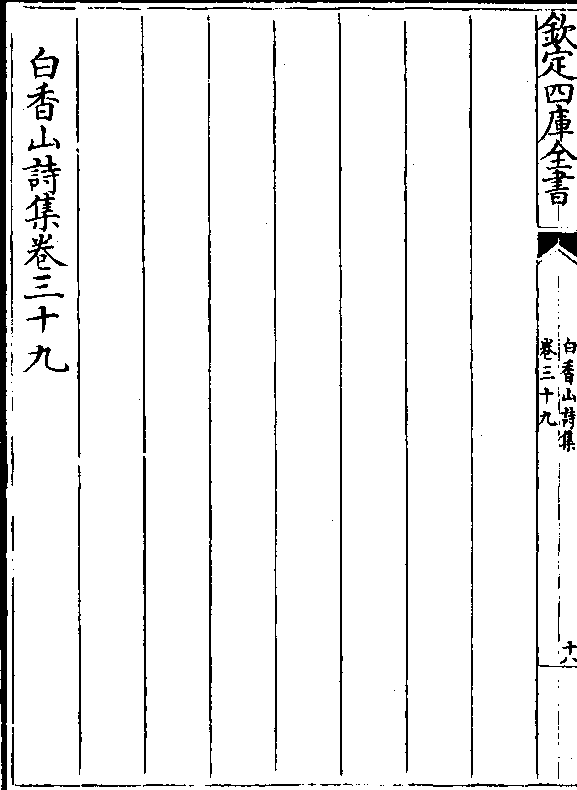 欽定四庫全書
白香山詩集
卷三十九
十八
白香山詩集卷三十九